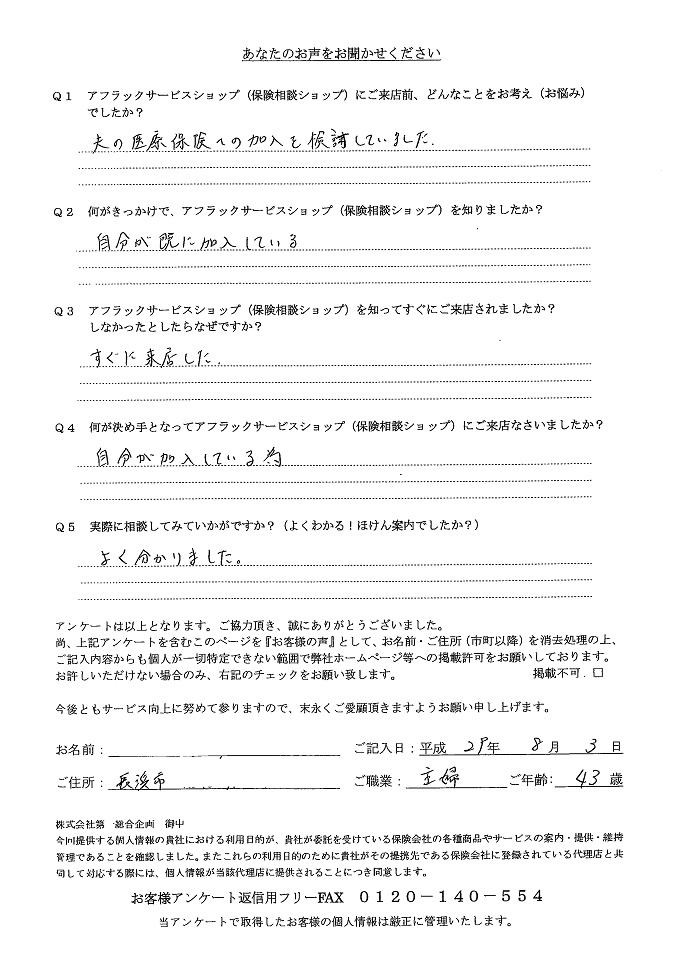 あなたのお声をお聞かせください
Q1 アフラックサービスショップ（保険相談ショップ）にご来店前、どんなことをお考え（お悩み）
でしたか？
夫の医療保険への加入を検討していました.
Q2 何がきっかけで、アフラックサービスショップ（保険相談ショップ）を知りましたか？
自分が既に加入している
Q3 アフラックサービスショップ（保険相談ショップ）を知ってすぐにご来店されましたか？
しなかったとしたらなぜですか？
すぐに来店した.
Q4 何が決め手となってアフラックサービスショップ（保険相談ショップ）にご来店なさいましたか？
自分が加入している為
Q5 実際に相談してみていかがですか？（よくわかる！ほけん案内でしたか？）
よく分かりました。
アンケートは以上となります。ご協力頂き、誠にありがとうございました。
尚、上記アンケートを含むこのページを『お客様の声』として、お名前・ご住所（市町以降）を消去処理の上、
ご記入内容からも個人が一切特定できない範囲で弊社ホームページ等への掲載許可をお願いしております。
お許しいただけない場合のみ、右記のチェックをお願い致します。 掲載不可. □
今後ともサービス向上に努めて参りますので、末永くご愛顧頂きますようお願い申し上げます。
お名前： ご記入日：平成 29年 8月 3日
ご住所：長浜市 ご職業：主婦 ご年齢：43歳
株式会社第一総合企画 御中
今回提供する個人情報の貴社における利用目的が、貴社が委託を受けている保険会社の各種商品やサービスの案内・提供・維持
管理であることを確認しました。またこれらの利用目的のために貴社がその提携先である保険会社に登録されている代理店と共
同して対応する際には、個人情報が当該代理店に提供されることにつき同意します。
お客様アンケート返信用フリーFAX 0120－140－554
当アンケートで取得したお客様の個人情報は厳正に管理いたします。